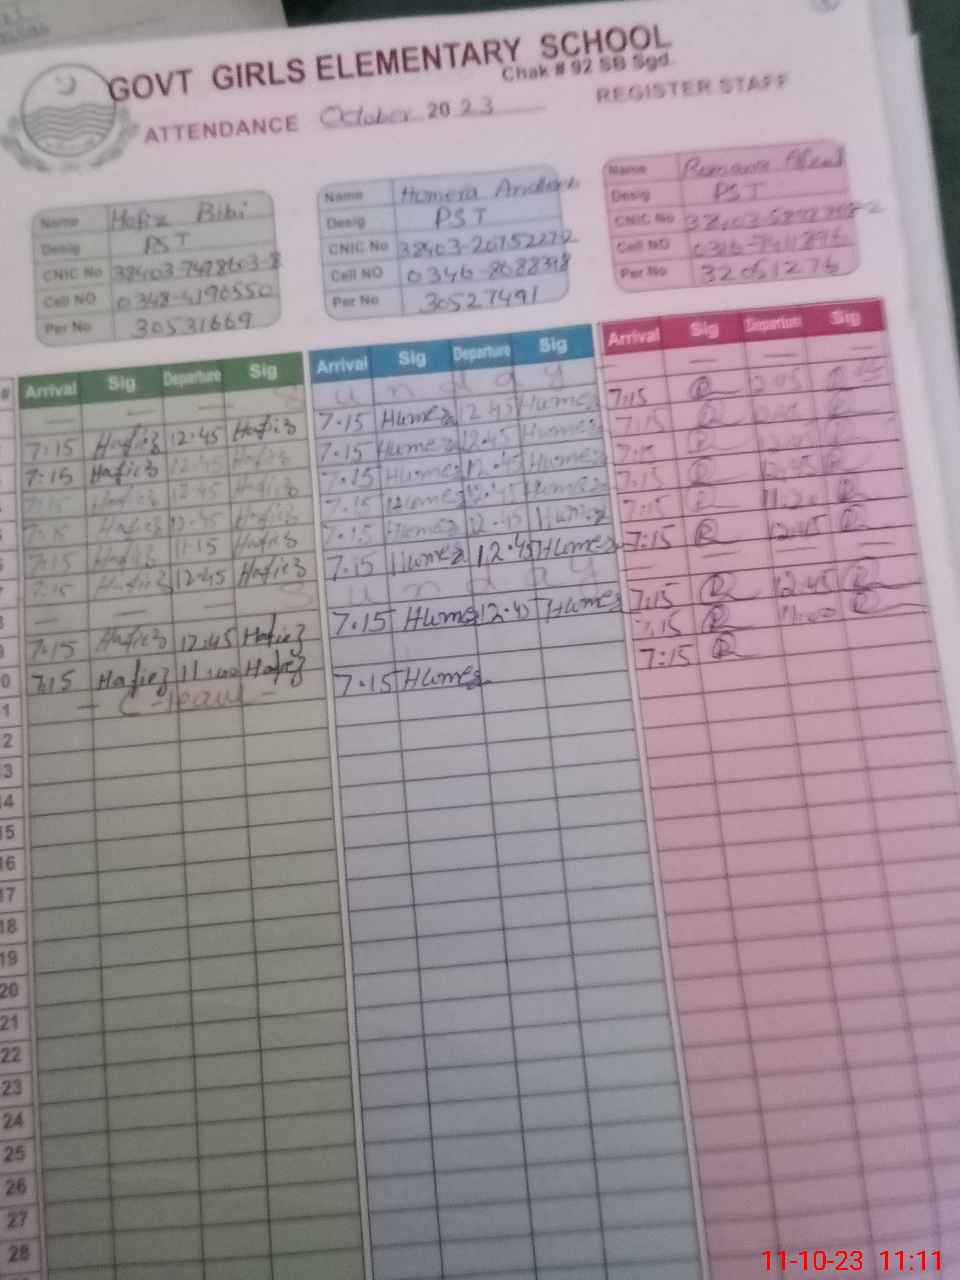 GOVT GIRLS ELEMENTARY SCHOOL
Chak # 92 SB Sgd.
ATTENDANCE October 2023 REGISTER STAFF
Name Hafiz Bibi
Desig PST
CNIC No 38403-7498603-8
Cell NO 0348-4190550
Per No 30531669
Name Humera
Desig PST
CNIC No 38403-2075227-2
Cell NO 0346-8688348
Per No 30527491
Name
Desig PST
CNIC No
Cell NO
Per No 32051276
# Arrival Sig Departure Sig Arrival Sig Departure Sig Arrival Sig Departure Sig
S u n d a y
7:15 Hafiz 12.45 Hafiz 7.15 Humera 12.45 Humera 7:15 R 12.45 R
7:15 Hafiz 12.45 Hafiz 7.15 Humera 12.45 Humera 7:15 R R
7:15 Hafiz 12.45 Hafiz 7.15 Humera 12.45 Humera 7:15 R R
7:15 Hafiz 12.45 Hafiz 7.15 Humera 12.45 Humera 7:15 R 12.45 R
7:15 Hafiz 11.15 Hafiz 7.15 Humera 12.45 Humera 7:15 R R
7:15 Hafiz 12.45 Hafiz 7.15 Humera 12.45 Humera 7:15 R 12.45 R
S u n d a y
7:15 Hafiz 12.45 Hafiz 7.15 Humera 12.45 Humera 7:15 R 12.45 R
7:15 Hafiz 11:00 Hafiz 7.15 Humera 7:15 R 11:00 R
- C-leave - 7:15 R
12
13
14
15
16
17
18
19
20
21
22
23
24
25
26
27
28
11-10-23 11:11